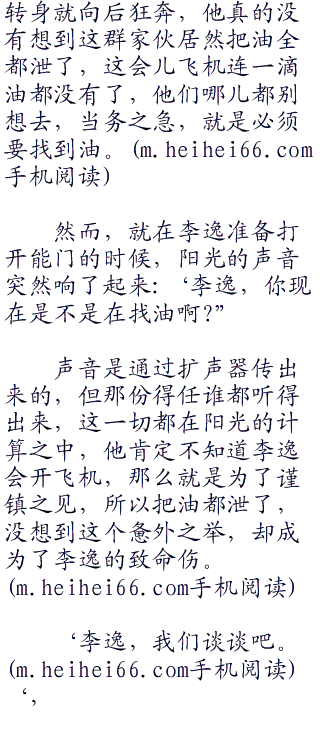 转身就向后狂奔，他真的没
有想到这群家伙居然把油全
都泄了，这会儿飞机连一滴
油都没有了，他们哪儿都别
想去，当务之急，就是必须
要找到油。(m.heihei66.com
手机阅读)
然而，就在李逸准备打
开能门的时候，阳光的声音
突然响了起来:‘李逸，你现
在是不是在找油啊?”
声音是通过扩声器传出
来的，但那份得任谁都听得
出来，这一切都在阳光的计
算之中，他肯定不知道李逸
会开飞机，那么就是为了谨
镇之见，所以把油都泄了，
没想到这个惫外之举，却成
为了李逸的致命伤。
(m.heihei66.com手机阅读)
‘李逸，我们谈谈吧。
(m.heihei66.com手机阅读)
‘,